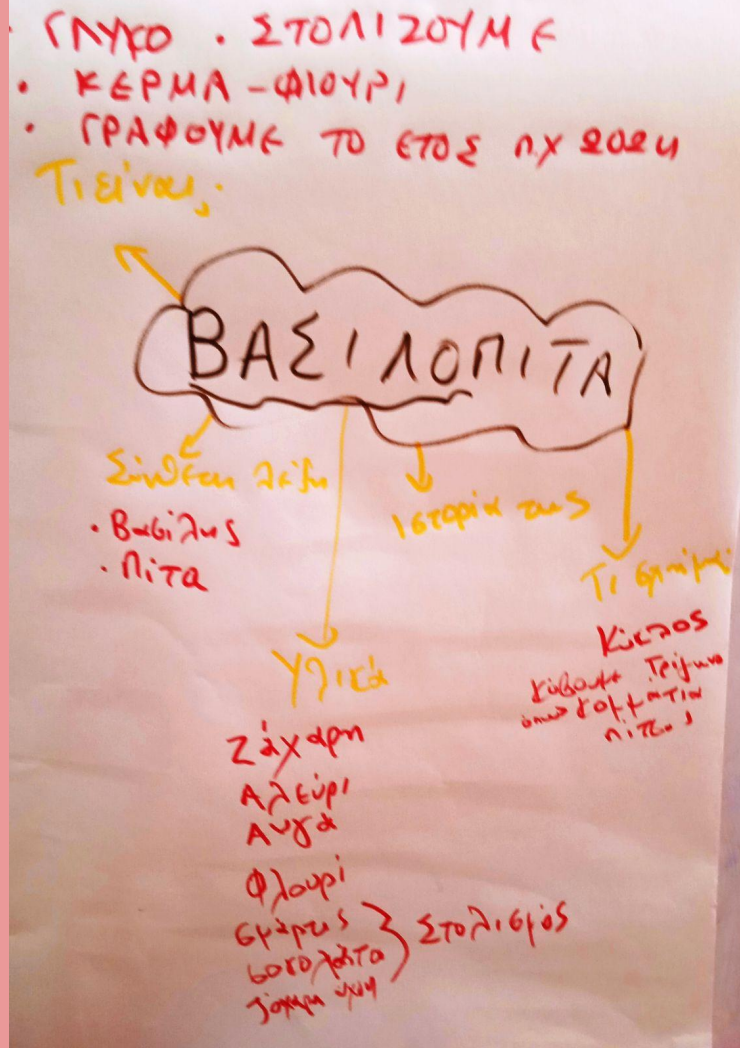 · ΓΛΥΚΟ · ΣΤΟΛΙΖΟΥΜΕ
· ΚΕΡΜΑ - ΦΙΟΥΡΙ
· ΓΡΑΦΟΥΜΕ ΤΟ ΕΤΟΣ ΠΧ 2024
Τι είναι;
ΒΑΣΙΛΟΠΙΤΑ
Σύνθετη λέξη
· Βασίλης
· Πίτα
ιστορία της
Τι σχήμα
Κύκλος
κόβουμε τρίγωνο
κομμάτια
πίτας
Υλικά
Ζάχαρη
Αλεύρι
Αυγά
Φλουρί
σμάρτις
σοκολάτα
ζάχαρη άχνη
Στολισμός